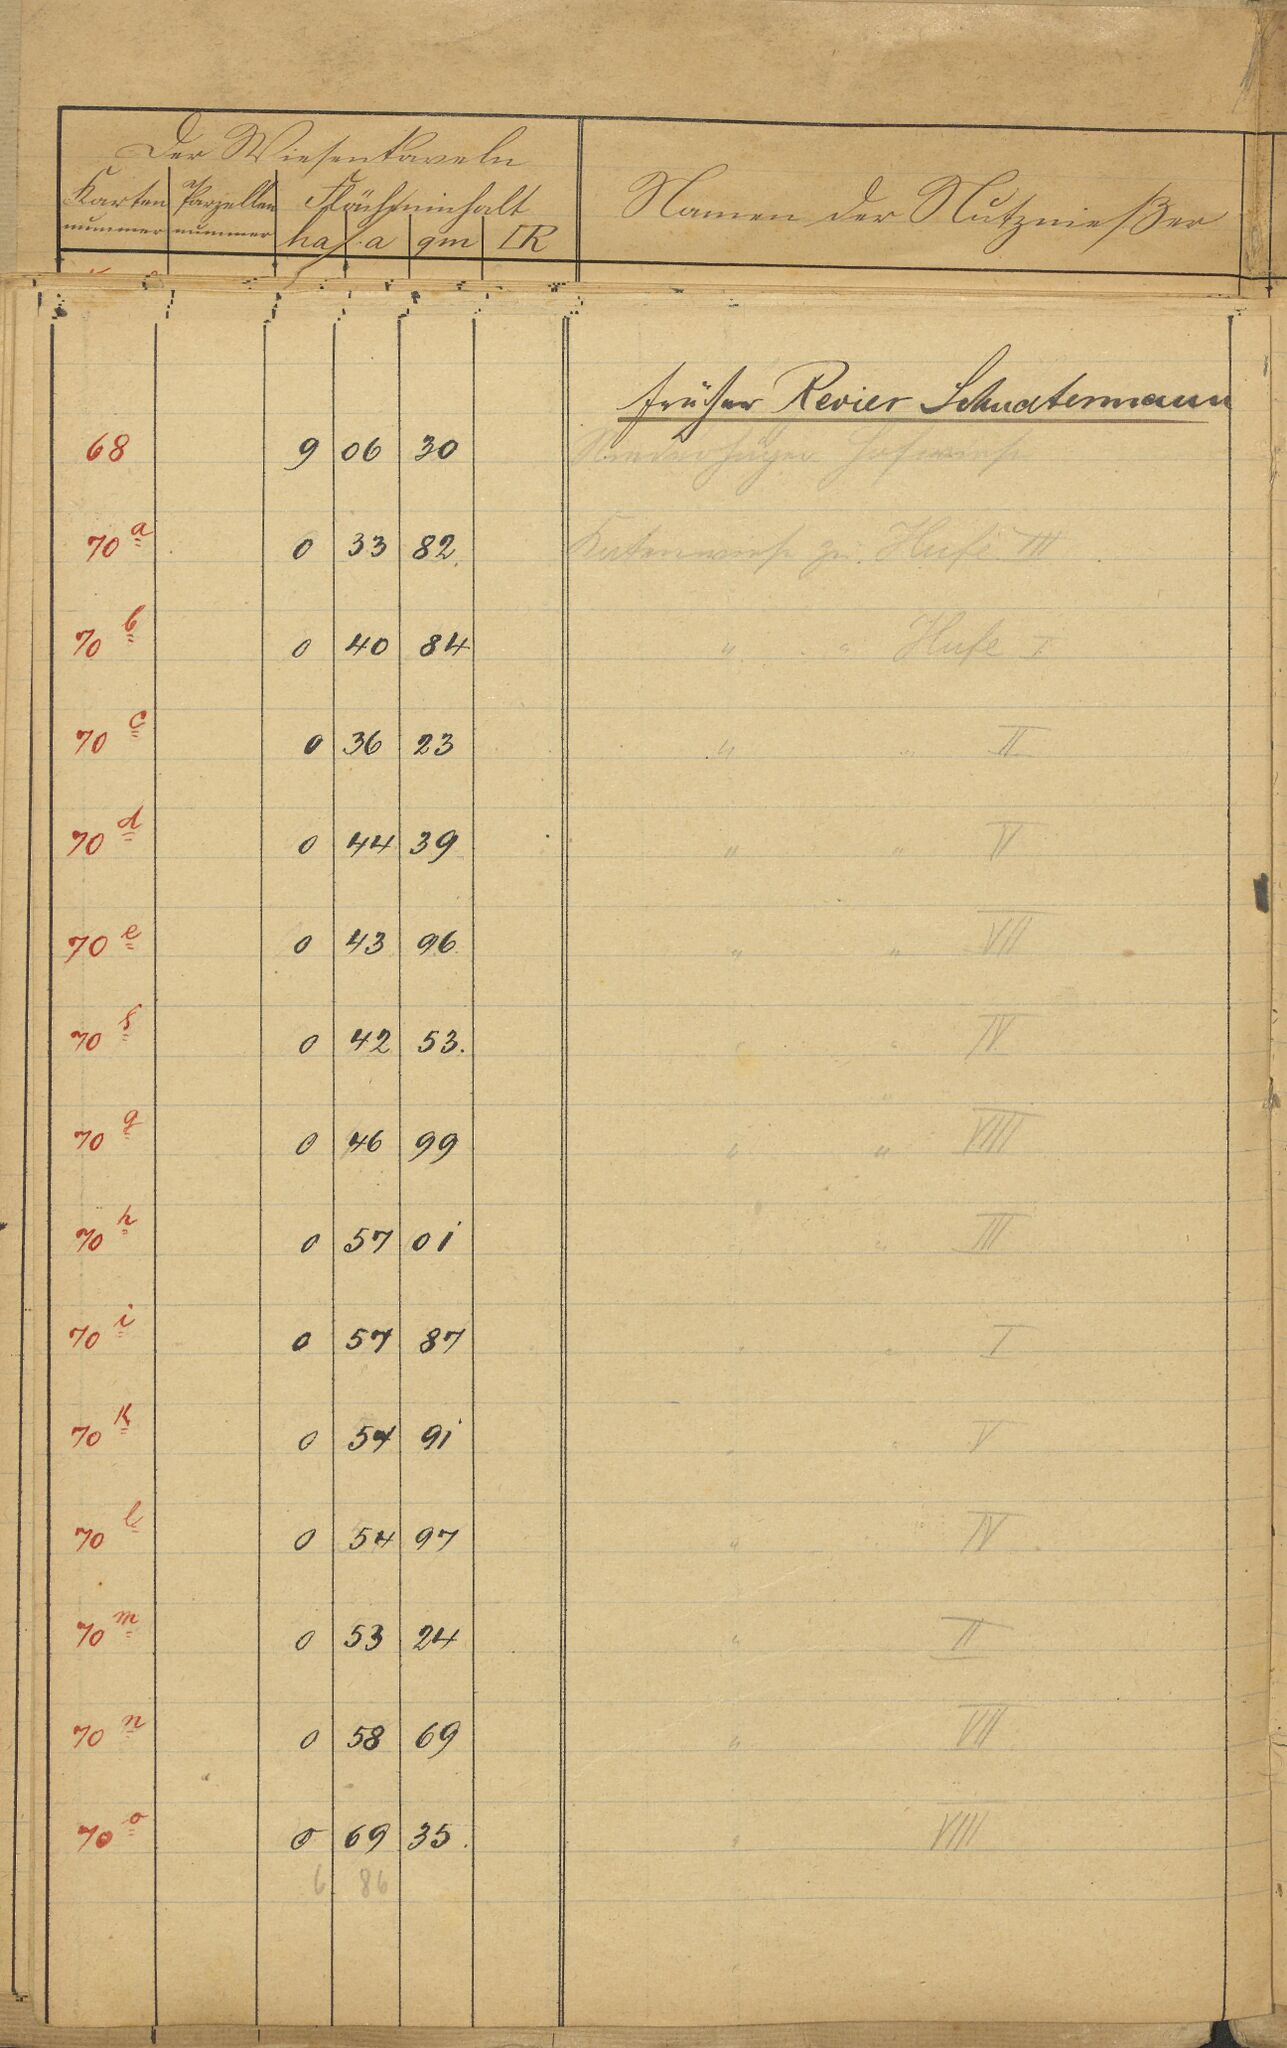 Der Wiesenkaveln
Karten Parzellen Flächeninhalt Namen der Nutznießer
nummer nummer ha a qm □R
früher Revier Schuatermann
68 9 06 30 Niederhäger Hofwiese
70 a 0 33 82. Katenwiese zu Hufe III
70 b 0 40 84 " " Hufe I
70 c 0 36 23 " " II
70 d 0 44 39 " " V
70 e 0 43 96 " " VII
70 f 0 42 53. " " IV
70 g 0 46 99 " " VIII
70 h 0 57 01 " III
70 i 0 57 87 " " I
70 k 0 54 91 " " V
70 l 0 54 97 " IV
70 m 0 53 24 " II
70 n 0 58 69 " VII
70 o 0 69 35. " VIII
6 86